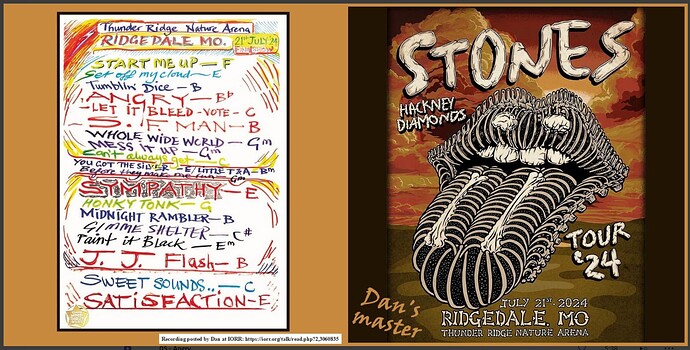 Thunder Ridge Nature Arena
RIDGEDALE MO. 21ST JULY '24
START ME UP — F
Get off my cloud — E
Tumblin' Dice — B
ANGRY — Bb
LET IT BLEED - VOTE - C
S. F. MAN - B
WHOLE WIDE WORLD — Gm
MESS IT UP — Gm
Can't always get — C
YOU GOT THE SILVER - E/LITTLE T & A - Bm
Before they make me run - Gm
SYMPATHY — E
HONKY TONK — G
MiDNiGHT RAMBLER — B
GIMME SHELTER — C#
Paint it Black — Em
J. J. Flash — B
SWEET SOUNDS.. — C
SATiSFACTiON — E
Recording posted by Dan at IORR: https://iorr.org/talk/read.php?2,3060835
STONES
HACKNEY
DIAMONDS
TOUR
'24
Dan's
master
JULY 21ST. 2024
RIDGEDALE, MO
THUNDER RIDGE NATURE ARENA